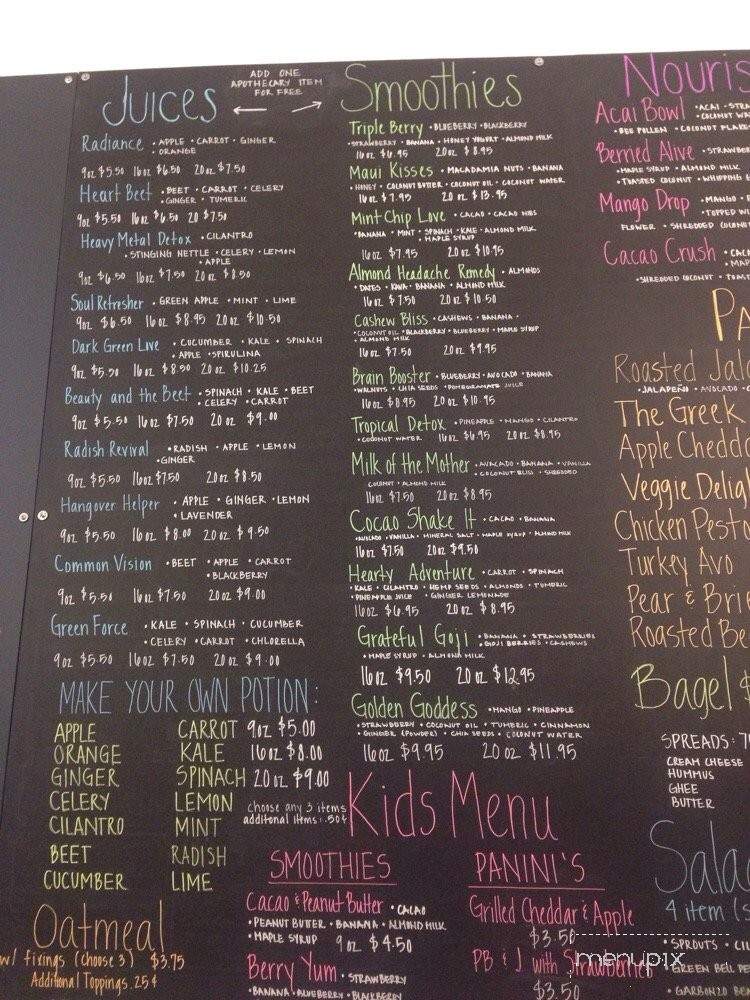 Juices
ADD ONE
APOTHECARY ITEM
FOR FREE
Radiance • APPLE • CARROT • GINGER
• ORANGE
9oz $5.50 16oz $6.50 20oz $7.50
Heart Beet • BEET • CARROT • CELERY
• GINGER • TUMERIC
9oz $5.50 16oz $6.50 20 $7.50
Heavy Metal Detox • CILANTRO
• STINGING NETTLE • CELERY • LEMON
• APPLE
9oz $6.50 16oz $7.50 20oz $8.50
Soul Refresher • GREEN APPLE • MINT • LIME
9oz $6.50 16oz $8.95 20oz $10.50
Dark Green Live • CUCUMBER • KALE • SPINACH
• APPLE • SPIRULINA
9oz $5.50 16oz $8.50 20oz $10.25
Beauty and the Beet • SPINACH • KALE • BEET
• CELERY • CARROT
9oz $5.50 16oz $7.50 20oz $9.00
Radish Revival • RADISH • APPLE • LEMON
• GINGER
9oz $5.50 16oz $7.50 20oz $8.50
Hangover Helper • APPLE • GINGER • LEMON
• LAVENDER
9oz $5.50 16oz $8.00 20oz $9.50
Common Vision • BEET • APPLE • CARROT
• BLACKBERRY
9oz $5.50 16oz $7.50 20oz $9.00
Green Force • KALE • SPINACH • CUCUMBER
• CELERY • CARROT • CHLORELLA
9oz $5.50 16oz $7.50 20oz $9.00
MAKE YOUR OWN POTION:
APPLE CARROT 9oz $5.00
ORANGE KALE 16oz $8.00
GINGER SPINACH 20oz $9.00
CELERY LEMON choose any 3 items
CILANTRO MINT additonal items: .50¢
BEET RADISH
CUCUMBER LIME
Oatmeal
w/ fixings (choose 3) $3.75
Additional Toppings .25¢
Smoothies
Triple Berry • BLUEBERRY • BLACKBERRY
• STRAWBERRY • BANANA • HONEY YOGURT • ALMOND MILK
16oz $6.95 20oz $8.95
Maui Kisses • MACADAMIA NUTS • BANANA
• HONEY • COCONUT BUTTER • COCONUT OIL • COCONUT WATER
16oz $7.95 20oz $13.95
Mint Chip Love • CACAO • CACAO NIBS
• BANANA • MINT • SPINACH • KALE • ALMOND MILK
• MAPLE SYRUP
16oz $7.95 20oz $10.95
Almond Headache Remedy • ALMONDS
• DATES • KAVA • BANANA • ALMOND MILK
16oz $7.50 20oz $10.50
Cashew Bliss • CASHEWS • BANANA •
• COCONUT OIL • BLACKBERRY • BLUEBERRY • MAPLE SYRUP
• ALMOND MILK
16oz $7.50 20oz $9.95
Brain Booster • BLUEBERRY • AVOCADO • BANANA
• WALNUTS • CHIA SEEDS • POMEGRANATE JUICE
16oz $8.95 20oz $10.95
Tropical Detox • PINEAPPLE • MANGO • CILANTRO
• COCONUT WATER 16oz $6.95 20oz $8.95
Milk of the Mother • AVOCADO • BANANA • VANILLA
• COCONUT BLISS • SHREDDED
COCONUT • ALMOND MILK
16oz $7.50 20oz $8.95
Cocao Shake It • CACAO • BANANA
• AVOCADO • VANILLA • MINERAL SALT • MAPLE SYRUP • ALMOND MILK
16oz $7.50 20oz $9.50
Hearty Adventure • CARROT • SPINACH
• KALE • CILANTRO • HEMP SEEDS • ALMONDS • TUMERIC
• PINEAPPLE JUICE • GINGER LEMONADE
16oz $6.95 20oz $8.95
Grateful Goji • BANANA • STRAWBERRIES
• GOJI BERRIES • CASHEWS
• MAPLE SYRUP • ALMOND MILK
16oz $9.50 20oz $12.95
Golden Goddess • MANGO • PINEAPPLE
• STRAWBERRY • COCONUT OIL • TUMERIC • CINNAMON
• GINGER (POWDER) • CHIA SEEDS • COCONUT WATER
16oz $9.95 20oz $11.95
Kids Menu
SMOOTHIES
Cacao & Peanut Butter • CACAO
• PEANUT BUTTER • BANANA • ALMOND MILK
• MAPLE SYRUP 9oz $4.50
Berry Yum • STRAWBERRY
• BANANA • BLUEBERRY • BLACKBERRY
PANINI'S
Grilled Cheddar & Apple
$3.50
PB & J with Strawberries
$3.50
Nouris
Acai Bowl • ACAI • STRA
• COCONUT WA
• BEE POLLEN • COCONUT FLAKE
Berried Alive • STRAWBE
• MAPLE SYRUP • ALMOND MILK
• TOASTED COCONUT • WHIPPING
Mango Drop • MANGO •
• TOPPED W
FLOWER • SHREDDED COCONU
Cacao Crush • CAC
• MAP
• SHREDDED COCONUT • TOAST
PA
Roasted Jala
• JALAPEÑO • AVOCADO • C
The Greek
Apple Chedda
Veggie Deligh
Chicken Pesto
Turkey Avo
Pear & Brie
Roasted Be
Bagel $
SPREADS: 7
CREAM CHEESE
HUMMUS
GHEE
BUTTER
Salad
4 item (s
• SPROUTS • CIL
• GREEN BELL PE
• GARBONZO BEA
menupix